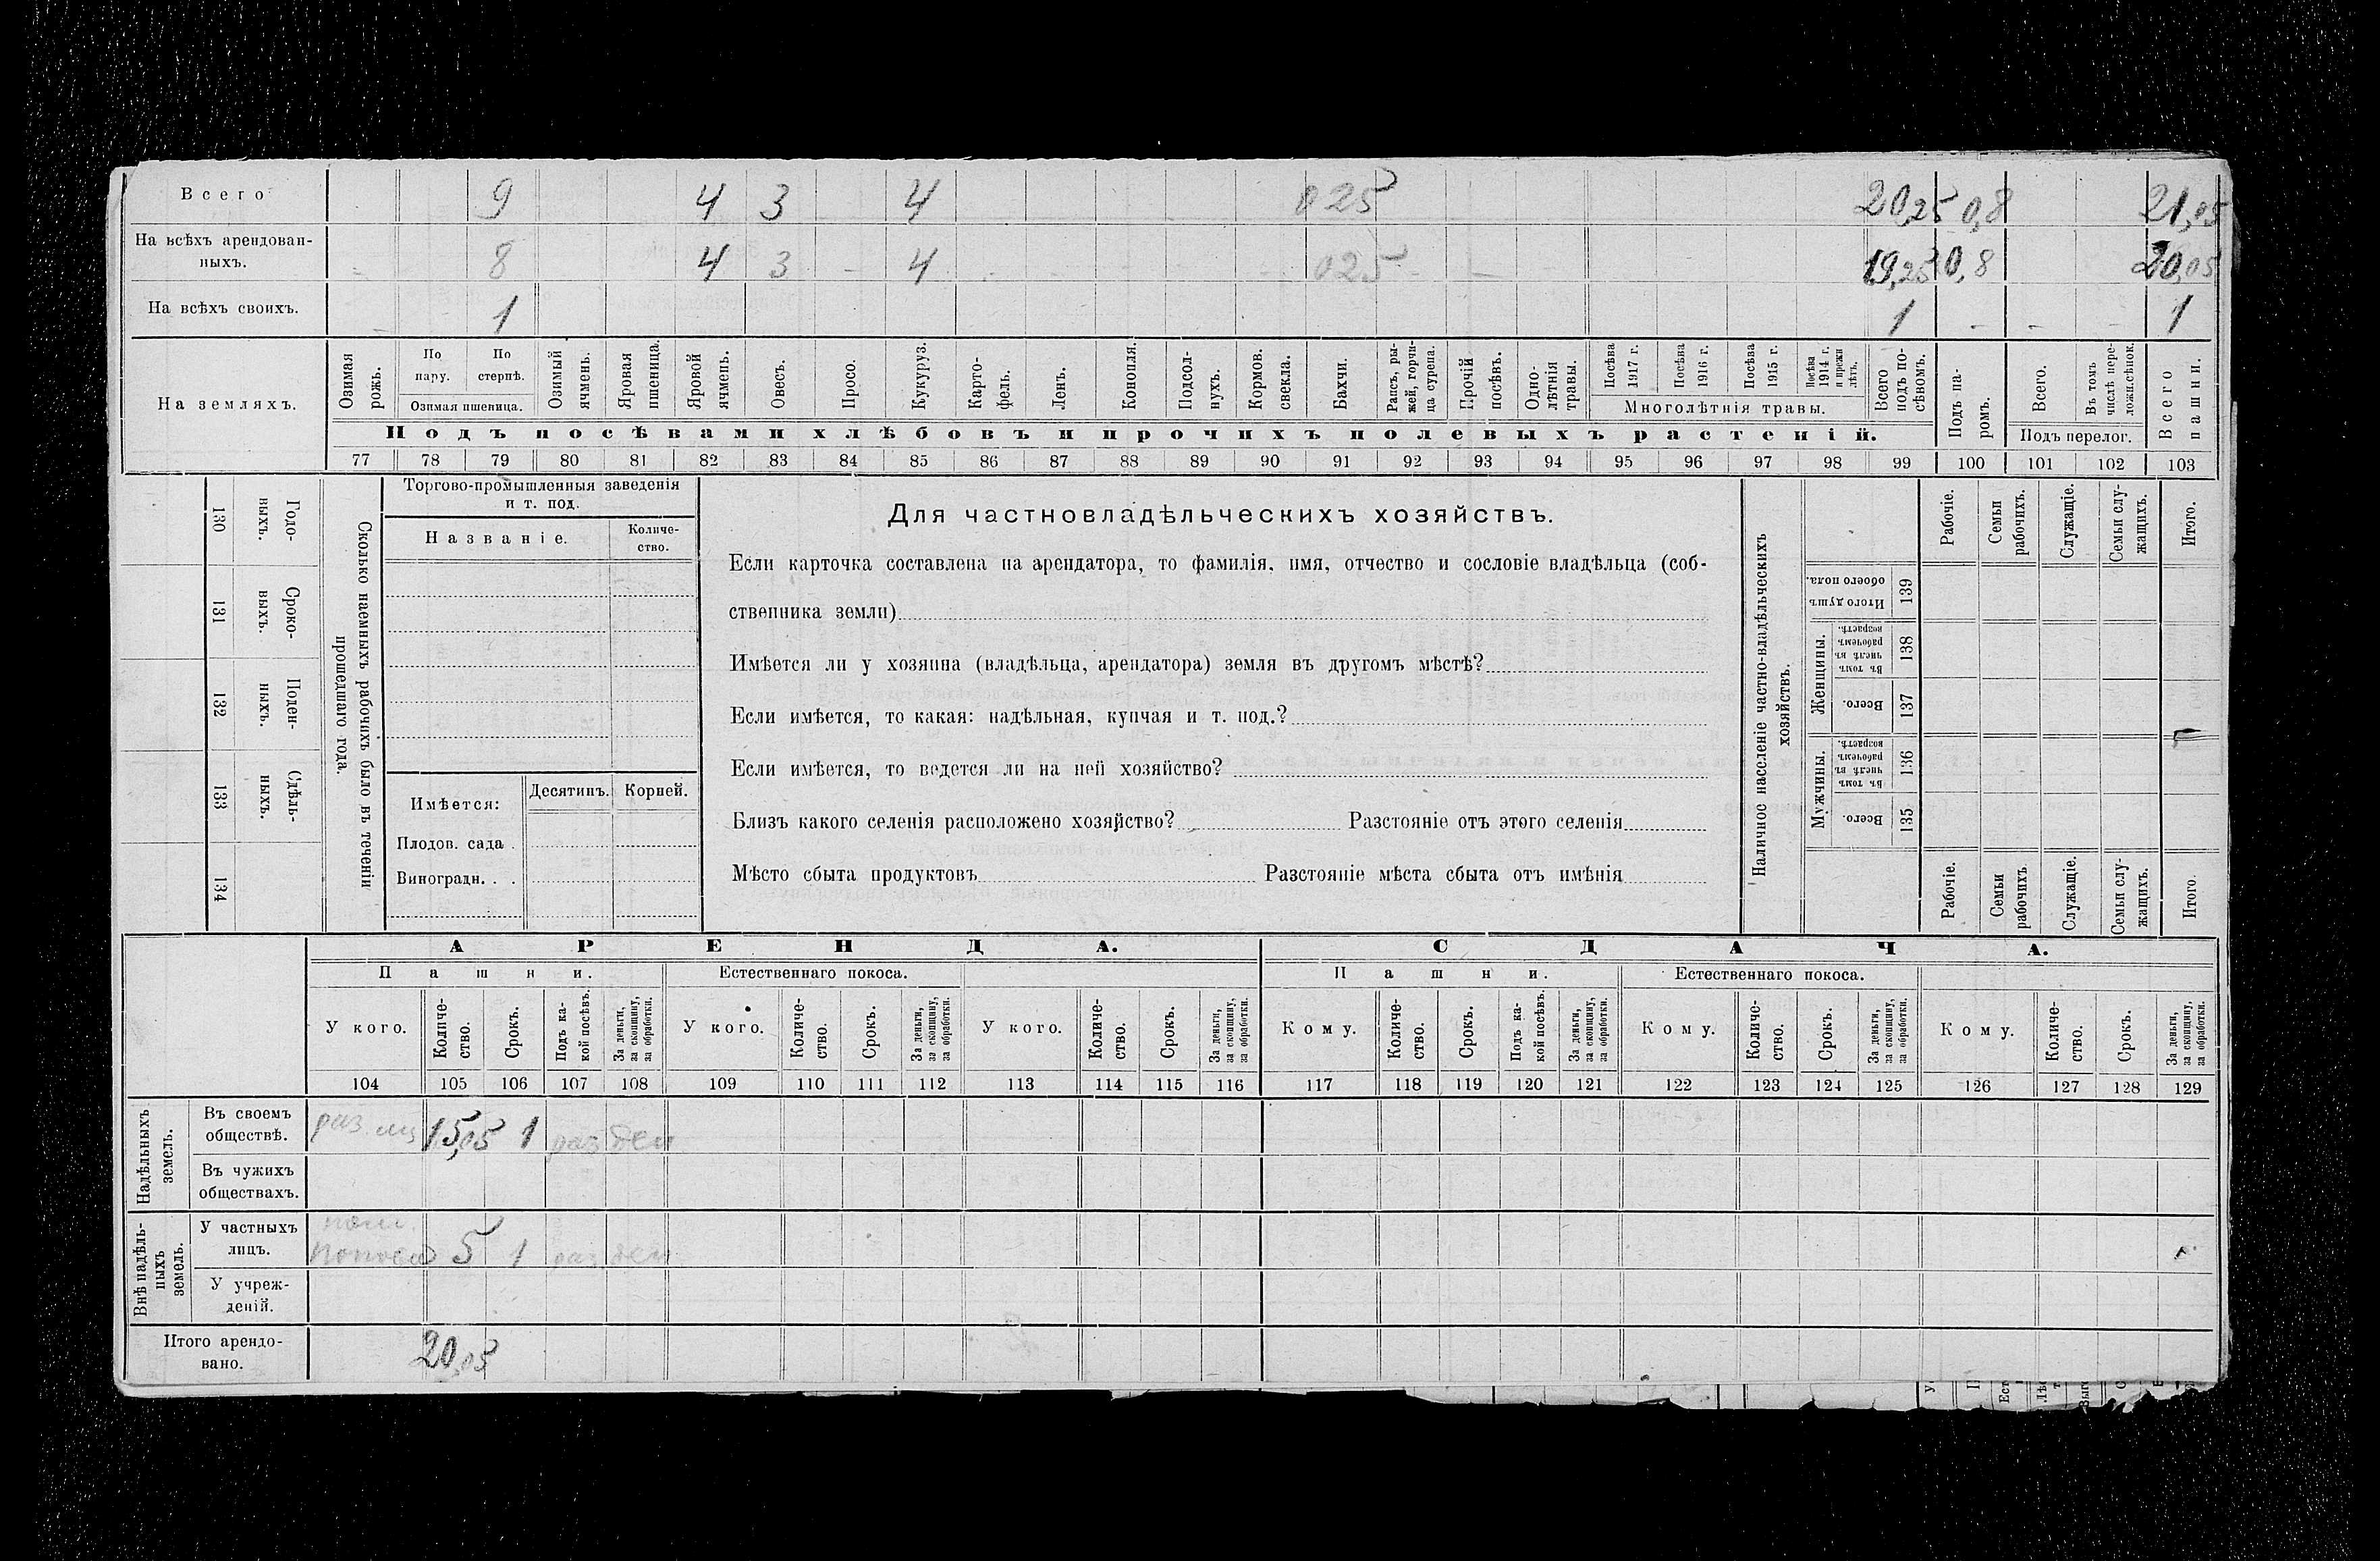 Всего 9 4 3 4 025 20,25 0,8 21,05
На всѣхъ арендован-
ныхъ. 8 4 3 4 025 19,25 0,8 20,05
На всѣхъ своихъ. 1 1 1
На земляхъ.
Озимая рожь.
По пару.
По стернѣ.
Озимая пшеница.
Озимый ячмень.
Яровая пшеница.
Яровой ячмень.
Овесъ.
Просо.
Кукуруз.
Карто-
фель.
Ленъ.
Конопля.
Подсол-
нухъ.
Кормов.
свекла.
Бахчи.
Рапсъ, ры-
жей, горчи-
ца сурепа.
Прочій посѣвъ.
Одно-
лѣтнія
травы.
Посѣва 1917 г.
Посѣва 1916 г.
Посѣва 1915 г.
Посѣва 1914 г. и прежн лѣтъ.
Многолѣтнія травы.
Всего подъ по-
сѣвомъ.
Подъ па-
ромъ.
Всего.
Въ томъ числѣ пере-
Подъ перелог.
Всего пашни.
Подъ посѣвами хлѣбовъ и прочихъ полевыхъ растеній.
77 78 79 80 81 82 83 84 85 86 87 88 89 90 91 92 93 94 95 96 97 98 99 100 101 102 103
130 Годо-
ныхъ.
131 Сроко-
выхъ.
132 Поден-
ныхъ.
133 Сдѣль-
ныхъ.
134
Сколько наемныхъ рабочихъ было въ теченіи
прошедшаго года.
Торгово-промышленныя заведенія
и т. под.
Названіе.
Количе-
ство.
Имѣется:
Десятинъ.
Корней.
Плодов. сада .
Виноградн. . .
Для частновладѣльческихъ хозяйствъ.
Если карточка составлена на арендатора, то фамилія, имя, отчество и сословіе владѣльца (соб-
ственника земли)
Имѣется ли у хозяина (владѣльца, арендатора) земля въ другомъ мѣстѣ?
Если имѣется, то какая: надѣльная, купчая и т. под.?
Если имѣется, то ведется ли на ней хозяйство?
Близъ какого селенія расположено хозяйство? Разстояніе отъ этого селенія
Мѣсто сбыта продуктовъ Разстояніе мѣста сбыта отъ имѣнія
Наличное населеніе частно-владѣльческихъ
хозяйствъ.
Рабочіе.
Семьи рабочихъ.
Служащіе.
Семьи слу-
жащихъ.
Итого.
Итого душъ обоего пола. 139
Женщины.
Въ томъ числѣ въ рабочемъ возрастѣ. 138
Всего. 137
Мужчины.
Въ томъ числѣ въ рабочемъ возрастѣ. 136
Всего. 135
Рабочіе.
Семьи рабочихъ
Служащіе.
Семьи слу-
жащихъ.
Итого.
АРЕНДА. СДАЧА.
Пашни. Естественнаго покоса. Пашни. Естественнаго покоса.
У кого.
Количе-
ство.
Срокъ.
Подъ ка-
кой посѣвъ.
За деньги,
за скопщину,
за обработки.
У кого.
Количе-
ство.
Срокъ.
За деньги,
за скопщину,
за обработки.
У кого.
Количе-
ство.
Срокъ.
За деньги,
за скопщину,
за обработки.
Кому.
Количе-
ство.
Срокъ.
Подъ ка-
кой посѣвъ.
За деньги,
за скопщину,
за обработки.
Кому.
Количе-
ство.
Срокъ.
За деньги,
за скопщину,
за обработки.
Кому.
Количе-
ство.
Срокъ.
За деньги,
за скопщину,
за обработки.
104 105 106 107 108 109 110 111 112 113 114 115 116 117 118 119 120 121 122 123 124 125 126 127 128 129
Надѣльныхъ
земель.
Въ своемъ
обществѣ. раз. лиц 15,05 1 раз ден
Въ чужихъ
обществахъ.
Внѣ надѣль-
ныхъ
земель.
У частныхъ
лицъ. 5 1 раз. ден
У учреж-
деній.
Итого арендо-
вано. 20,05